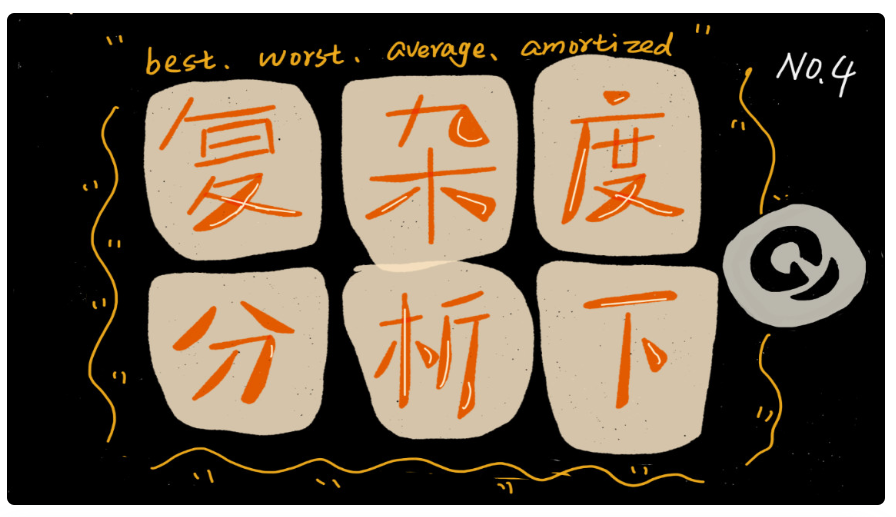 " best. worst. average. amortized "
NO.4
复杂度
分析下